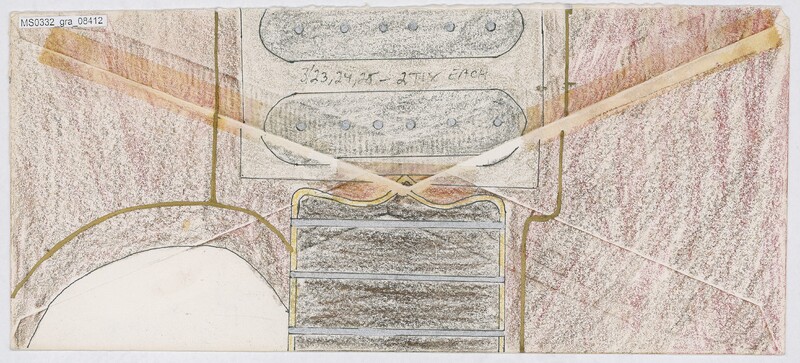 MS0332 gra_08412
3/23,24,25 - 2TIX EACH